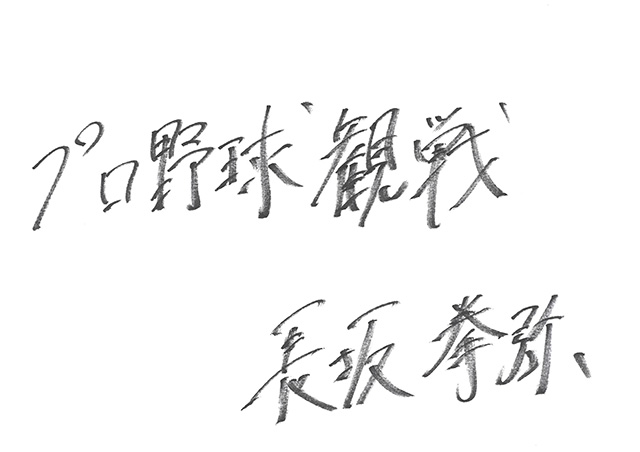 プロ野球観戦
長坂拳弥